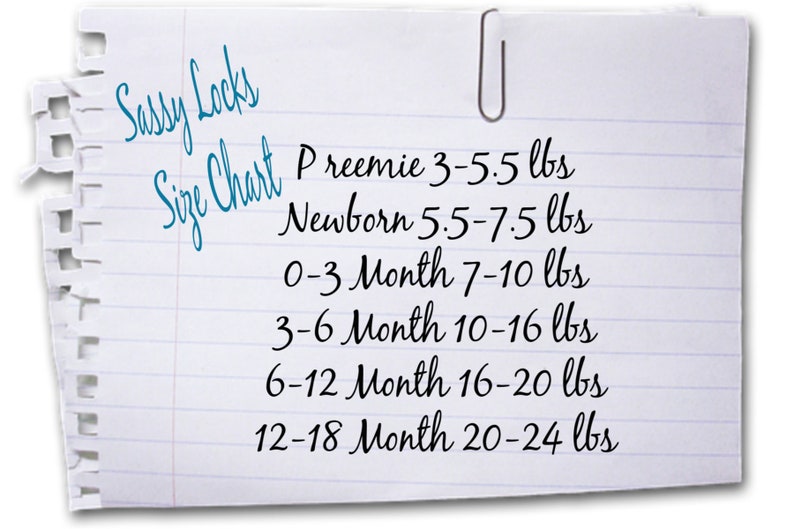 Sassy Locks
Size Chart
P reemie 3-5.5 lbs
Newborn 5.5-7.5 lbs
0-3 Month 7-10 lbs
3-6 Month 10-16 lbs
6-12 Month 16-20 lbs
12-18 Month 20-24 lbs